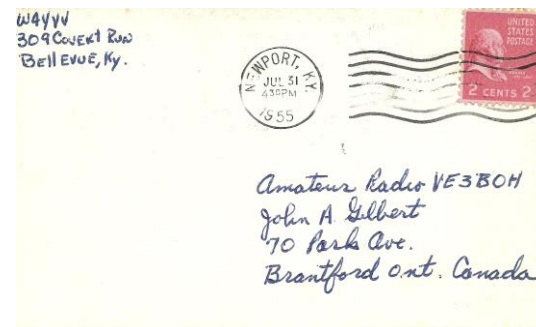 W4YVV
309 COVERT RUN
BELLEVUE, Ky.
NEWPORT, KY.
JUL 31
4 30 PM
1955
UNITED
STATES
POSTAGE
2 CENTS 2
Amateur Radio VE3BOH
John A Gilbert
70 Park Ave.
Brantford Ont. Canada